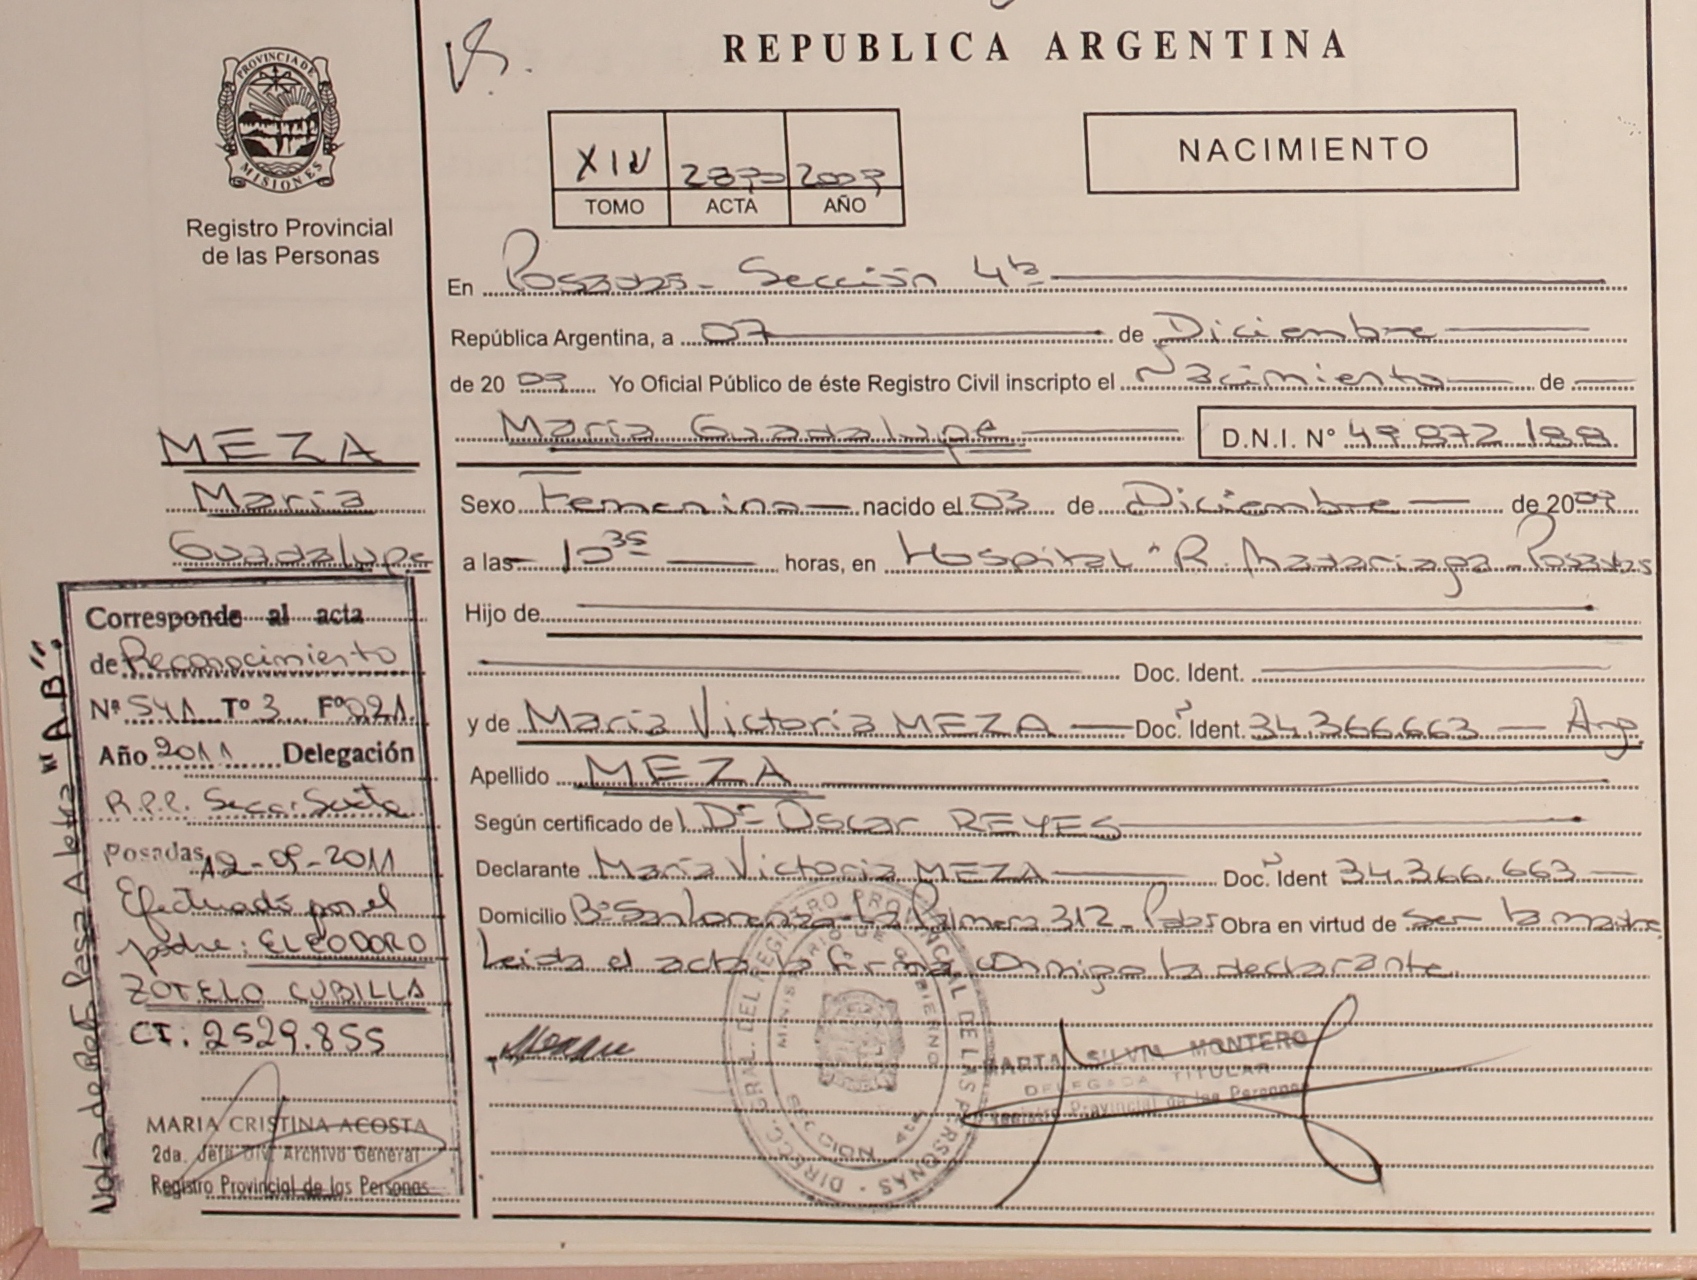 REPUBLICA ARGENTINA
PROVINCIA DE
MISIONES
Registro Provincial
de las Personas
XIV 2870 2009
TOMO ACTA AÑO
NACIMIENTO
En Posadas - Sección 4ta
República Argentina, a 07 de Diciembre
de 2009 Yo Oficial Público de éste Registro Civil inscripto el Nacimiento de
María Guadalupe D.N.I. Nº 49.872.188
MEZA
María
Guadalupe
Sexo Femenina nacido el 03 de Diciembre de 2009
a las 10 35 horas, en Hospital "R. Madariaga - Posadas
Hijo de
Doc. Ident.
y de María Victoria MEZA Doc. Ident. 34.366.663 - Arg
Apellido MEZA
Según certificado del Dr Oscar REYES
Declarante María Victoria MEZA Doc. Ident 34.366.663
Domicilio Bº San Lorenzo - La Palmera 312 - Pdas Obra en virtud de ser la madre
Leida el acta la firma conmigo la declarante
MARTA SILVIA MONTERO
DELEGADA TITULAR
Registro Provincial de las Personas
DIRECC. GRAL. DEL REGISTRO PROVINCIAL DE LAS PERSONAS
MINISTERIO DE GOBIERNO
SECCION 4ta
Corresponde al acta
de Reconocimiento
Nº 541 Tº 3 Fº 021
Año 2011 Delegación
R.P.P. Secc. Sexta
Posadas, 12-09-2011
Efectuado por el
padre: ELEODORO
ZOTELO CUBILLA
CI: 2529.855
MARIA CRISTINA ACOSTA
2da. Jefa Div. Archivo General
Registro Provincial de las Personas
Nota de Ref. Pasa A letra "A.B".